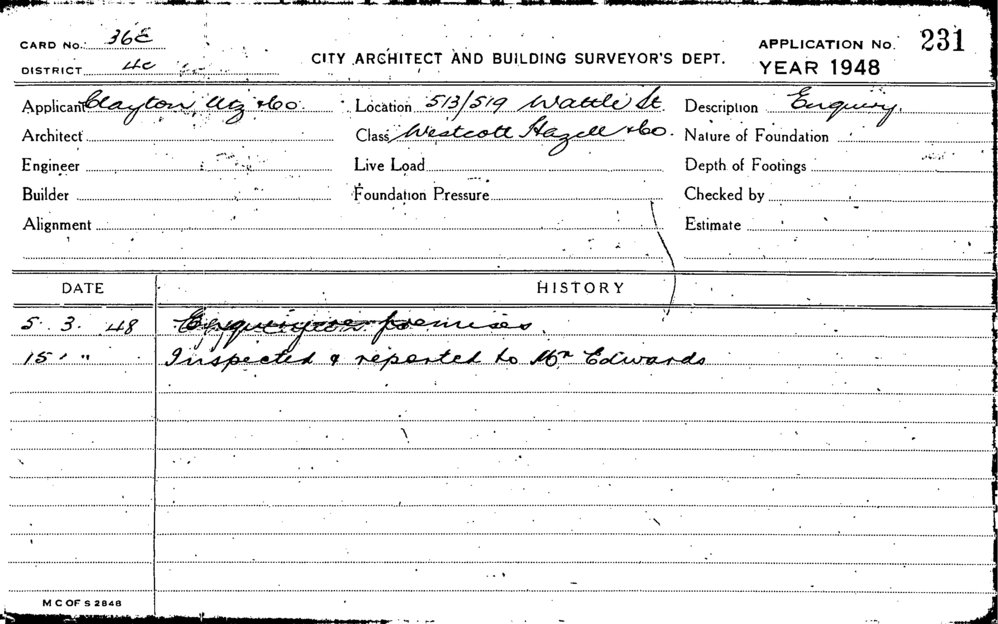 CARD No. 36E
DISTRICT 4C
CITY ARCHITECT AND BUILDING SURVEYOR'S DEPT.
APPLICATION No. 231
YEAR 1948
Applicant Clayton Utz & Co. Location 513/519 Wattle St. Description Enquiry.
Architect Class Westcott Hazell & Co. Nature of Foundation
Engineer Live Load Depth of Footings
Builder Foundation Pressure Checked by
Alignment Estimate
DATE HISTORY
5. 3. 48 premises.
15 " " Inspected & reported to Mr Edwards
M C OF S 2848